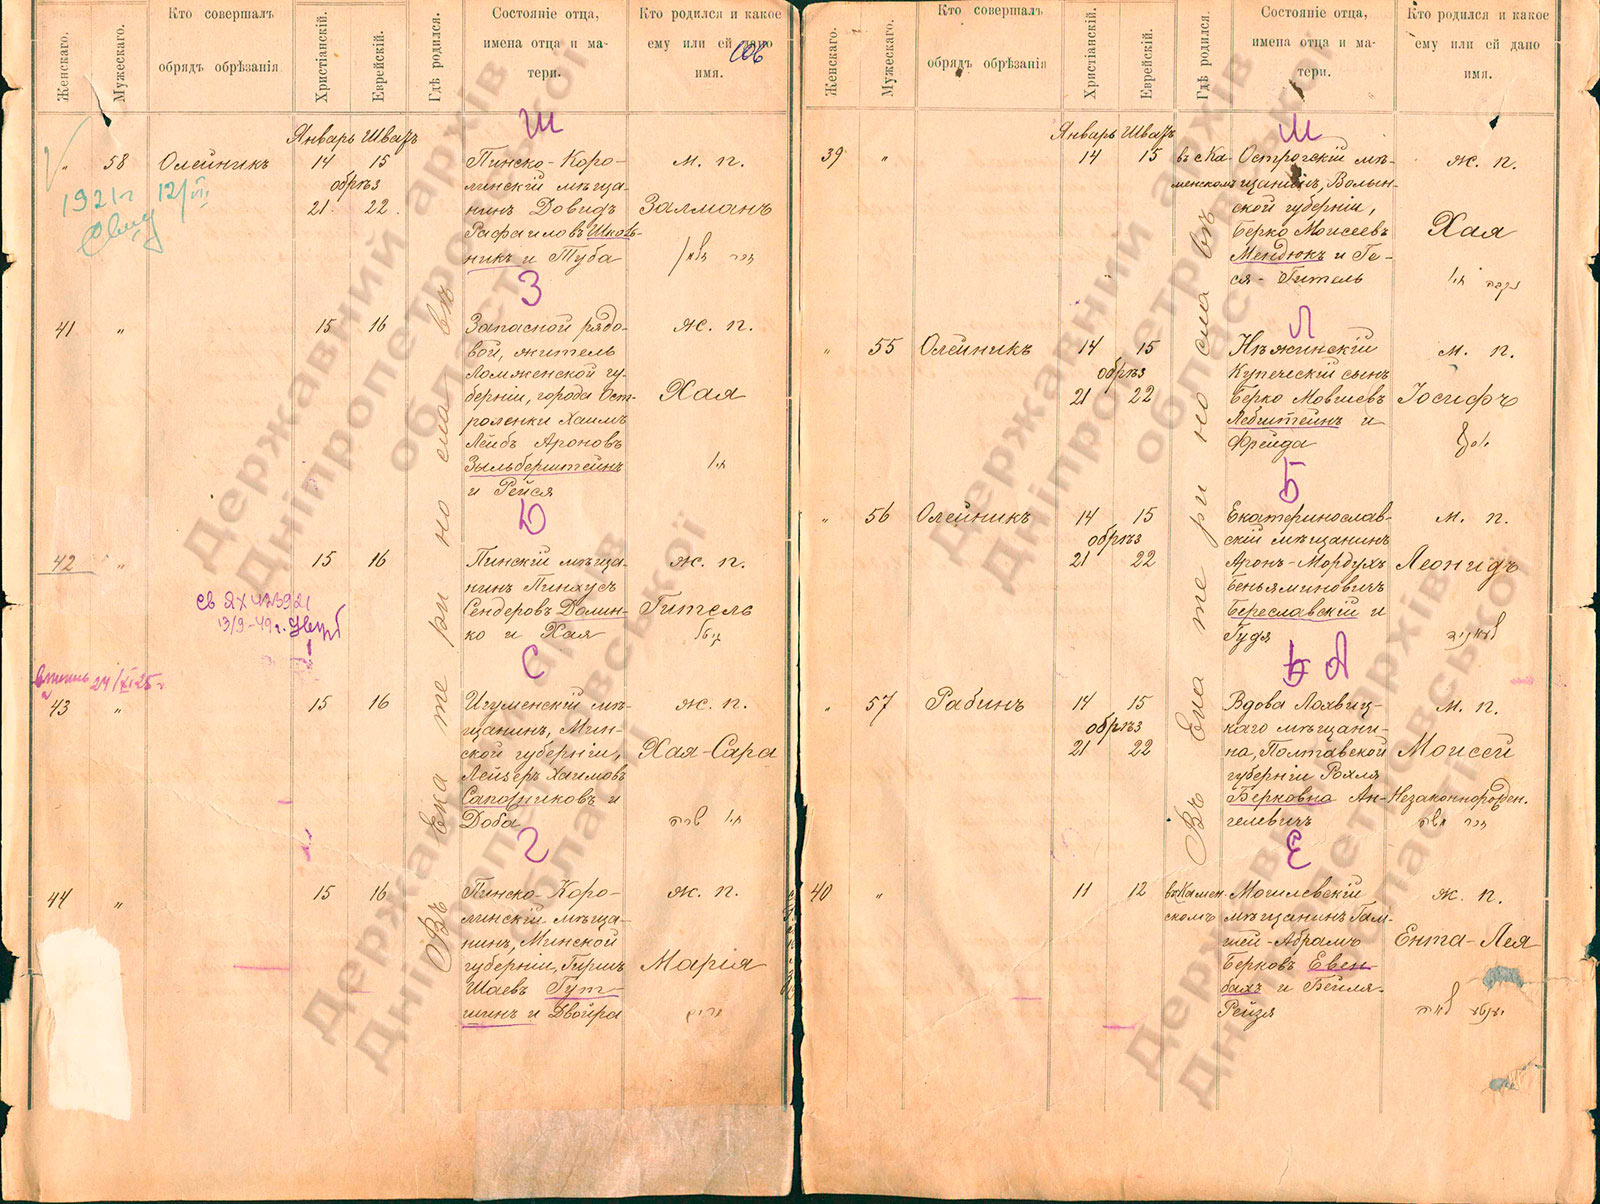 Женскаго.
Мужескаго.
Кто совершалъ
обрядъ обрѣзанія
Христіанскій.
Еврейскій.
Гдѣ родился.
Состояніе отца,
имена отца и ма-
тери.
Кто родился и какое
ему или ей дано
имя.
Январь Шватъ
Ш
" 58 Олейникъ 14 15
обрѣз
21 22
Пинско-Каро-
линскій мѣща-
нинъ Довидъ
Рафаиловъ Школь-
никъ и Туба
м. п.
Залманъ
זכר
1921 г 12/VII
З
41 " 15 16
Запасной рядо-
вой, житель
Ломженской гу-
берніи, города Ост-
роленки Хаимъ
Лейбъ Ароновъ
Зыльберштейнъ
и Рейся
ж. п.
Хая
חי'
Д
42 " 15 16
Пинскій мѣща-
нинъ Пинхусъ
Сендеровъ Долин-
ко и Хая
ж. п.
Гитель
גיטל
С
24/XI 25 г
43 " 15 16
Игуменскій мѣ-
щанинъ, Мин-
ской губерніи,
Лейзеръ Хаимовъ
Сапожниковъ и
Доба
ж. п.
Хая-Сара
חי' שרה
Г
44 " 15 16
Пинско-Каро-
линскій мѣща-
нинъ, Минской
губерніи, Гиршъ
Шаевъ Гут-
шинъ и Двойра
ж. п.
Марія
Въ Екатеринославѣ
Женскаго.
Мужескаго.
Кто совершалъ
обрядъ обрѣзанія
Христіанскій.
Еврейскій.
Гдѣ родился.
Состояніе отца,
имена отца и ма-
тери.
Кто родился и какое
ему или ей дано
имя.
Январь Шватъ
М
39 " 14 15
въ Ка-
менскомъ
Острогскій мѣ-
щанинъ, Волын-
ской губерніи,
Берко Моисеевъ
Мендюкъ и Ге-
ся-Гитель
ж. п.
Хая
נקבה חי'
Л
" 55 Олейникъ 14 15
обрѣз
21 22
Нѣжинскій
Купеческій сынъ
Берко Мовшевъ
Лебштейнъ и
Фрейда
м. п.
Іосифъ
יוסף
Б
" 56 Олейникъ 14 15
обрѣз
21 22
Екатеринослав-
скій мѣщанинъ
Аронъ-Мордухъ
Беньяминовичъ
Береславскій и
Гудя
м. п.
Леонидъ
לעאניד
А
" 57 Рабинъ 14 15
обрѣз
21 22
Вдова Лохвиц-
каго мѣщани-
на, Полтавской
губерніи Рохля
Берковна Ан-
гелевичъ
м. п.
Моисей
Незаконнорожден.
זכר משה
Е
40 " 11 12
въ Камен-
скомъ
Могилевскій
мѣщанинъ Гам-
шей-Абрамъ
Берковъ Евен-
бахъ и Бейля-
Рейзя
ж. п.
Ента-Лея
יענטע לאה
Въ Екатеринославѣ
Державний архів
Дніпропетровської
області